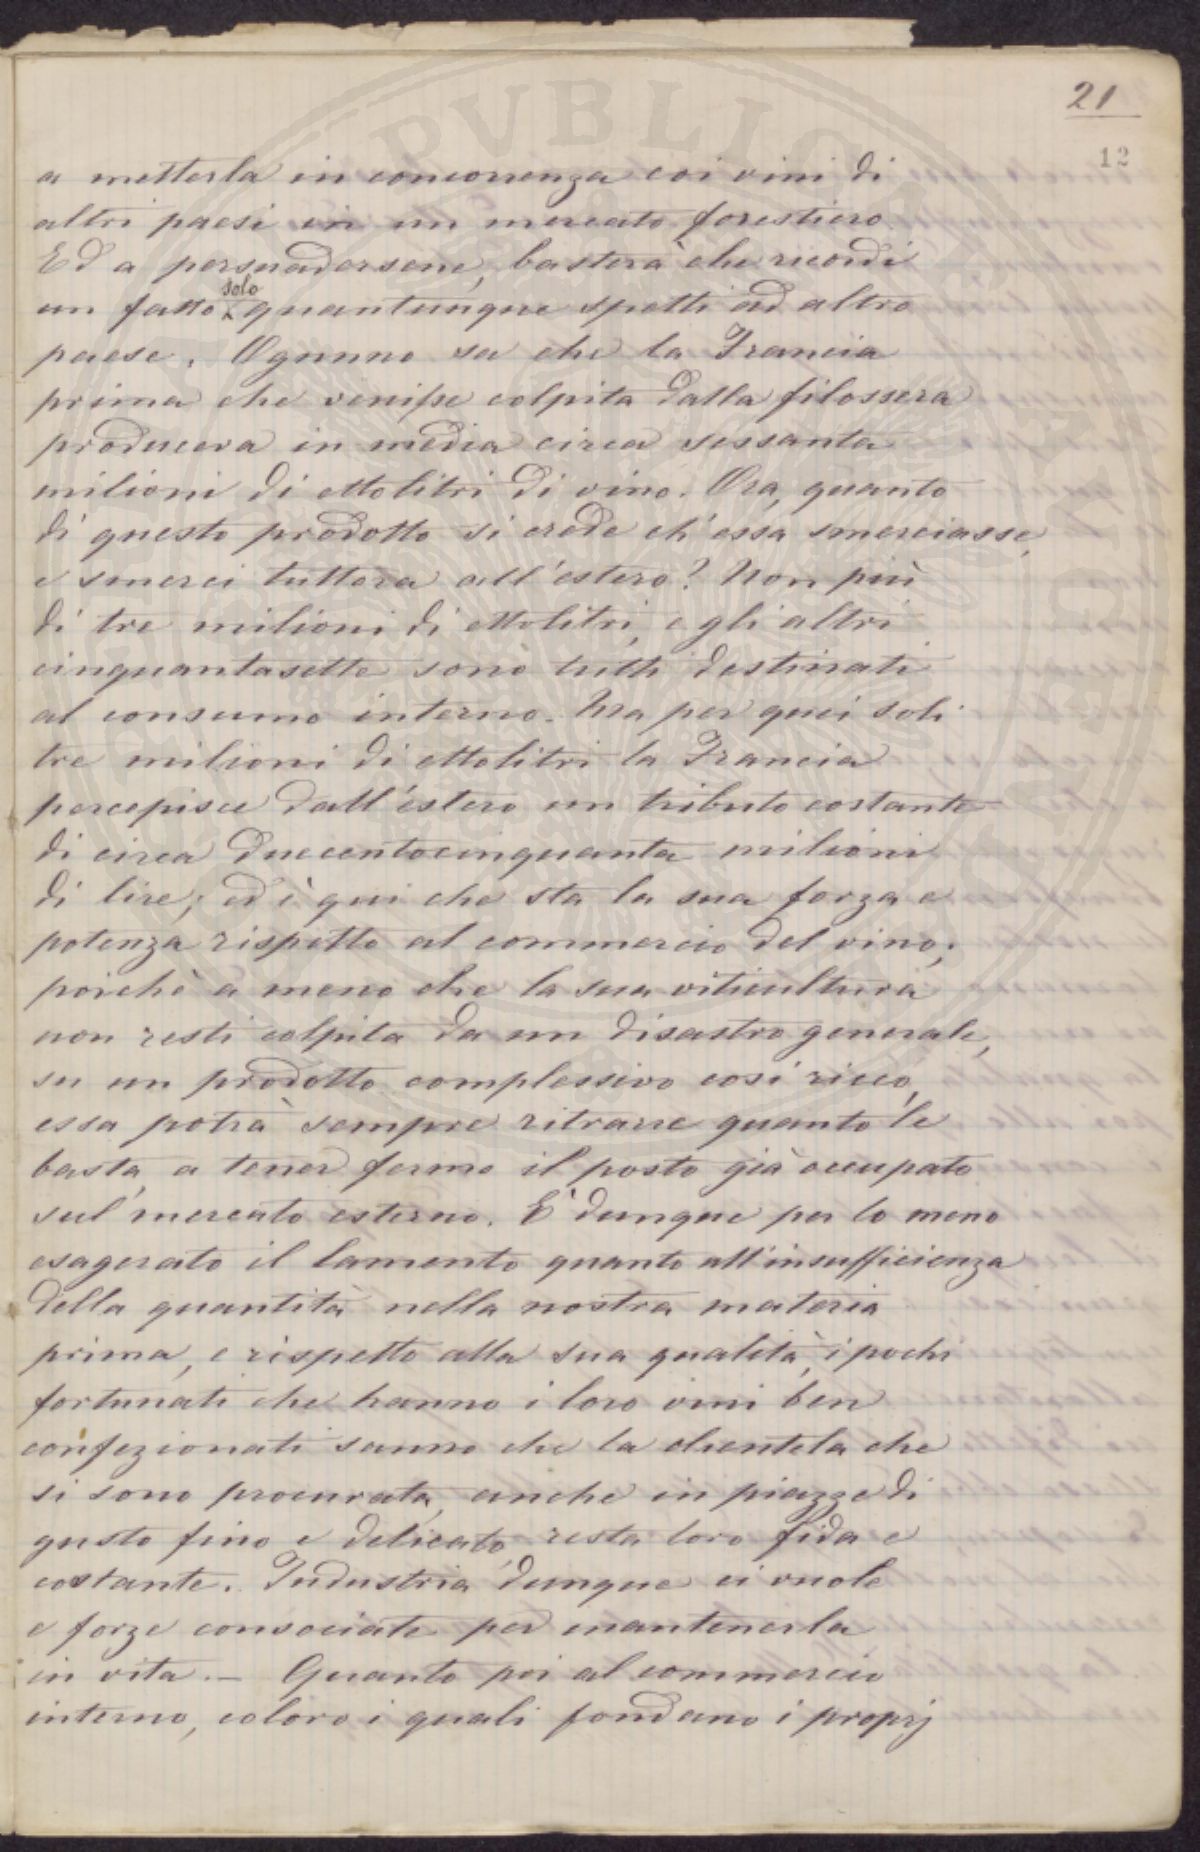 21
12
a metterla in concorrenza coi vini di
altri paesi in un mercato forestiero.
Ed a persuadersene, basterà che ricordi
un fatto solo quantunque spetti ad altro
paese. Ognuno sa che la Francia
prima che venisse colpita dalla filossera
produceva in media circa sessanta
milioni di ettolitri di vino. Ora, quanto
di questo prodotto si crede ch'essa smerciasse,
e smerci tuttora all'estero? Non più
di tre milioni di ettolitri, e gli altri
cinquantasette sono tutti destinati
al consumo interno. Ma per quei soli
tre milioni di ettolitri la Francia
percepisce dall'estero un tributo costante
di circa duecentocinquanta milioni
di lire; ed è qui che sta la sua forza e
potenza rispetto al commercio del vino;
poichè a meno che la sua viticultura
non resti colpita da un disastro generale,
su un prodotto complessivo così ricco,
essa potrà sempre ritrarre quanto le
basta, a tener fermo il posto già occupato
sul mercato esterno. E' dunque per lo meno
esagerato il lamento quanto all'insufficienza
della quantità nella nostra materia
prima, e rispetto alla sua qualità, i pochi
fortunati che hanno i loro vini ben
confezionati sanno che la clientela che
si sono procurata, anche in piazze di
gusto fino e delicato, resta loro fida e
costante. Industria dunque ci vuole
e forze consociate per mantenerla
in vita. — Quanto poi al commercio
interno, coloro i quali fondano i proprj